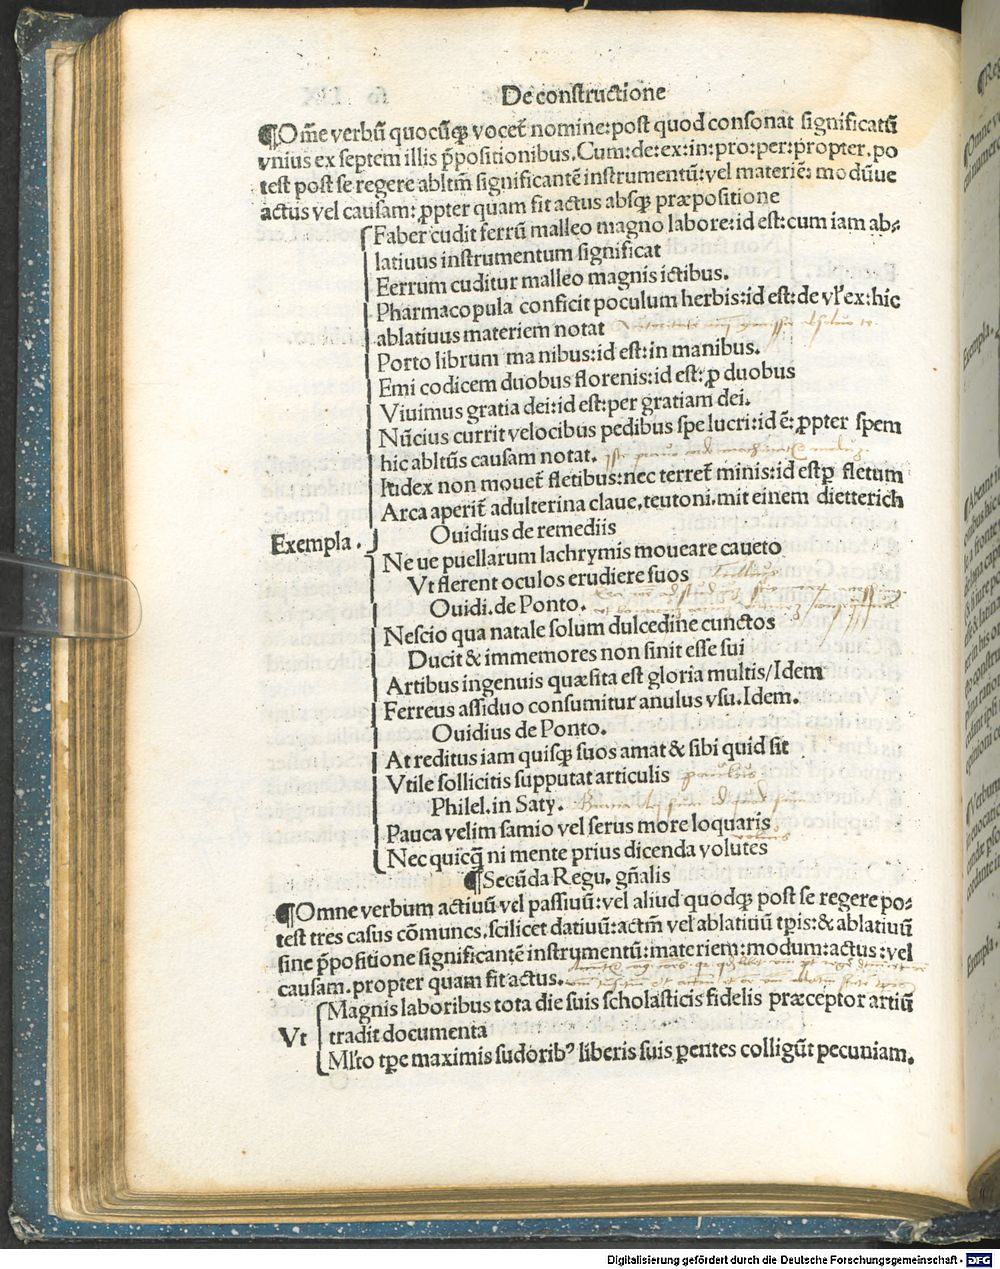 De constructione
¶Om̃e verbũ quocũqꝫ vocet᷑ nomine:post quod consonat significatũ
vnius ex septem illis p̃positionibus.Cum:de:ex:in:pro:per:propter.po
test post se regere abltm̃ significantẽ instrumentũ:vel materiẽ: modũue
actus vel causam: ꝓpter quam fit actus absqꝫ præpositione
Faber cudit ferrũ malleo magno labore:id est:cum iam ab⸗
latiuus instrumentum significat
Eerrum cuditur malleo magnis ictibus.
Pharmacopula conficit poculum herbis:id est:de vl᷑ ex:hic
ablatiuus materiem notat
Porto librum manibus:id est:in manibus.
Emi codicem duobus florenis:id est:ꝓ duobus
Viuimus gratia dei:id est:per gratiam dei.
Nũcius currit velocibus pedibus spe lucri:id ẽ:ꝓpter spem
hic abltũs causam notat.
Iudex non mouet᷑ fletibus:nec terret᷑ minis:id est ꝑ fletum
Arca aperit᷑ adulterina claue,teutoni.mit einem dietterich
Exempla.
Ouidius de remediis
Ne ue puellarum lachrymis moueare caueto
Vt flerent oculos erudiere suos
Ouidi.de Ponto.
Nescio qua natale solum dulcedine cunctos
Ducit & immemores non sinit esse sui
Artibus ingenuis quæsita est gloria multis/Idem
Ferreus assiduo consumitur anulus vsu.Idem.
Ouidius de Ponto.
At reditus iam quisqꝫ suos amat & sibi quid sit
Vtile sollicitis supputat articulis
Philel.in Saty.
Pauca velim samio vel serus more loquaris
Nec quicq̃ ni mente prius dicenda volutes
¶Secũda Regu. gñalis
¶Omne verbum actiuũ vel passiuũ:vel aliud quodqꝫ post se regere po⸗
test tres casus cõmunes.scilicet datiuũ:actm̃ vel ablatiuũ tꝑis:& ablatiuũ
sine p̃positione significantẽ instrumentũ:materiem:modum:actus:vel
causam.propter quam fit actus.
Vt
Magnis laboribus tota die suis scholasticis fidelis præceptor artiũ
tradit documenta
Ml᷑to tꝑe maximis sudoribꝰ liberis suis ꝑentes colligũt pecuniam.
Digitalisierung gefördert durch die Deutsche Forschungsgemeinschaft - DFG